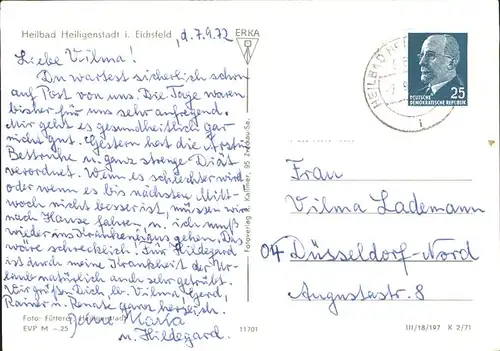 Heilbad Heiligenstadt i. Eichsfeld
d. 7.9.72
ERKA
Liebe Vilma!
Du wartest sicherlich schon
auf Post von uns. Die Tage waren
bisher für uns sehr aufregend.
Mir geht es gesundheitlich gar
nicht gut. Gestern hat die Ärztin
Bettruhe u. ganz strenge Diät
verordnet. Wenn es schlechter wird
oder wenn es bis nächsten Mitt-
woch nicht besser ist, müssen wir
nach Hause fahren, u. ich muß
wieder ins Krankenhaus gehen. Das
wäre schrecklich. Für Hildegard
ist durch meine Krankheit der Ur-
laub natürlich auch sehr getrübt.
Wir grüßen Dich, lb. Vilma, Gerd,
Rainer u. Renate ganz herzlich.
Deine Maria
u. Hildegard.
Foto: Fütterer, Heiligenstadt
EVP M –.25
11701
Fotoverlag R. Kallmer, 95 Zwickau-Sa.
HEILBAD
25
DEUTSCHE
DEMOKRATISCHE REPUBLIK
Frau
Vilma Lademann
04 Düsseldorf-Nord
Augustastr. 8
III/18/197 K 2/71